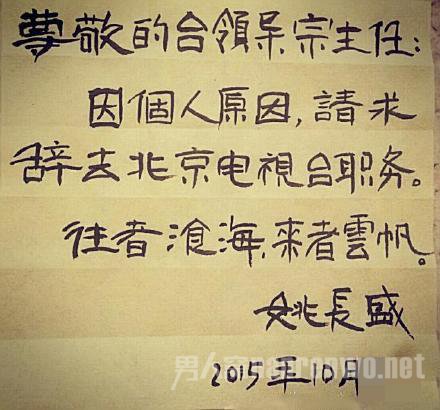 尊敬的台領导宗主任:
因個人原因,請求
辞去北京电視台职务。
往者滄海,來者雲帆。
姚長盛
2015年10月
男人窝nanrenwo.net